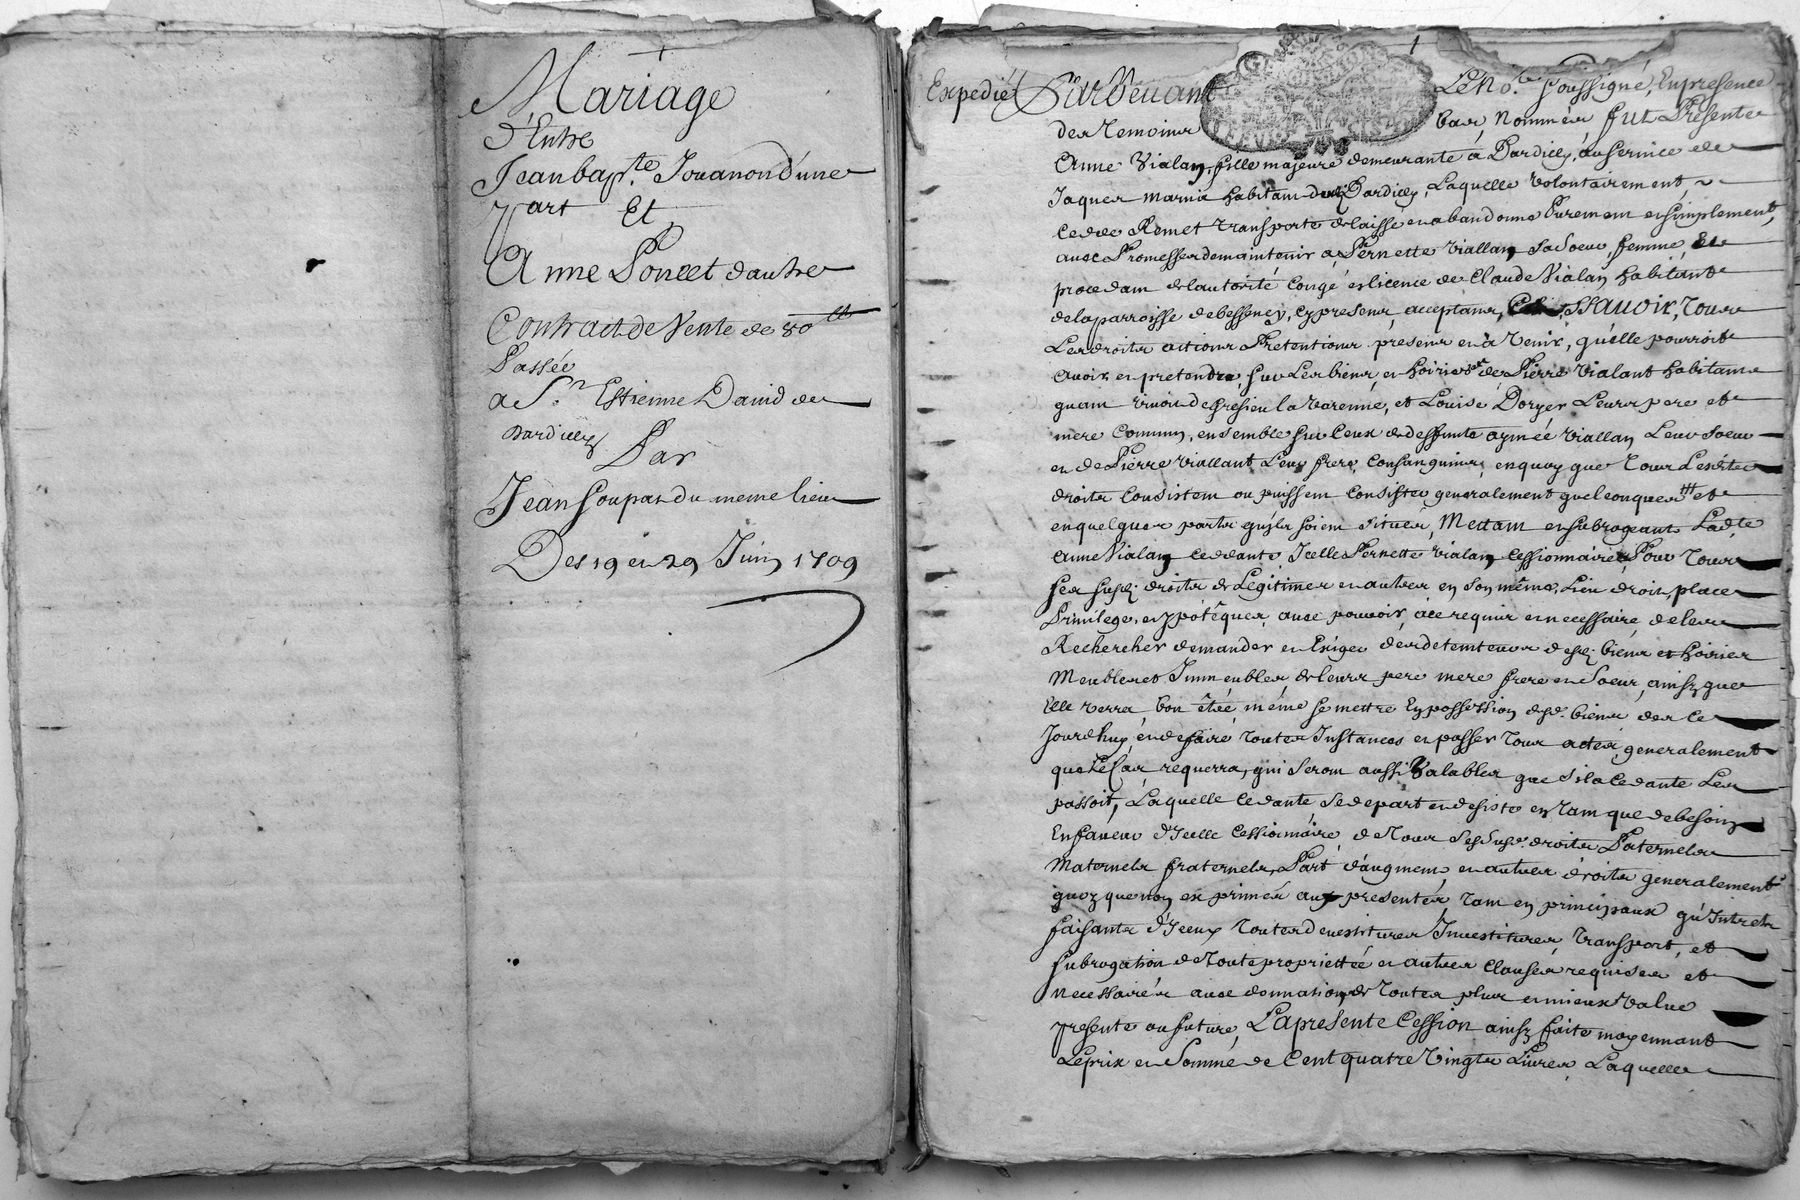 Mariage
d'Entre
Jean bap.te Jouanon d'une
Part Et
Anne Poncet dautre
Contract de Vente de 80 lt
Passée
a Sr Estienne David de
Dardilly
Par
Jean Soupat du meme lieu
Des 19 et 29 Juin 1709
Expedié
Pardevant Le No.re soussigné, En presence
des temoins bas Nommés fut Presente
Anne Vialan fille majeure demeurante à Dardilly, au service de
Jaques habitant dud. Dardilly, Laquelle volontairement
Cede Remet transporte delaisse et abandonne Purement et simplement,
avec Promesse de maintenir à Pernette Viallan sa Soeur, femme, Et
procedant de lautorité Congé et licence de Claude Vialan habitant
de la parroisse de bessenay, cy presens, acceptans, SSAUOIR, Tous
Les droits actions Pretentions presens et à Venir, qu'elle pourroit
avoir et pretendre, sur Les biens et hoiries de Pierre Vialant habitant
quant vivoit de fresieu la Varenne, et Louise Doryer Leurs pere et
mere Communs, ensemble sur Ceux de deffunte aymée Viallan Leur Soeur
et de Pierre Viallant Leur frere Consanguins, en quoy que Tous Lesdits
droits Consistent ou puissent Consister generalement quelconques et
en quelques parts qu'ils soient situés, Mettant et subrogeant Lad.te
Anne Vialan Cedante, Icelle Pernette Vialan Cessionnaire Pour Tous
ses susd. droits de Legitimes et autres en son même Lieu droit, place
Privilege, et ypotêques, avec pouvoir, à ce requis et necessaire de les
Rechercher demander et Exiger des detenteurs desd. biens et hoiries
Meubles et Immeubles de leurs pere mere frere et Soeur, ainsy que
Elle verra bon être, même se mettre En possession desd. biens des Ce
Jourdhuy, en de faire toutes Instances et passer Tous actes generalement
que Le Cas requerra, qui seront aussi Valables que si la Cedante Les
passoit, Laquelle Cedante se depart et desiste en tant que de besoin
En faveur d'Icelle Cessionnaire de Tous ses susd. droits Paternels
Maternels fraternels, Part d'augment, et autres droits generalement
quoyque non exprimés aux presentes, tant en principaux qu'Intrets
faisant d'Iceux toutes devestitures Investitures, transport, et
subrogation de Toute proprietté et autres Clauses requises et
necessaires avec donnation de toutes plus et mieux Value
presente ou future, La presente Cession ainsy faite moyennant
Le prix et Somme de Cent quatre Vingts Livres Laquelle